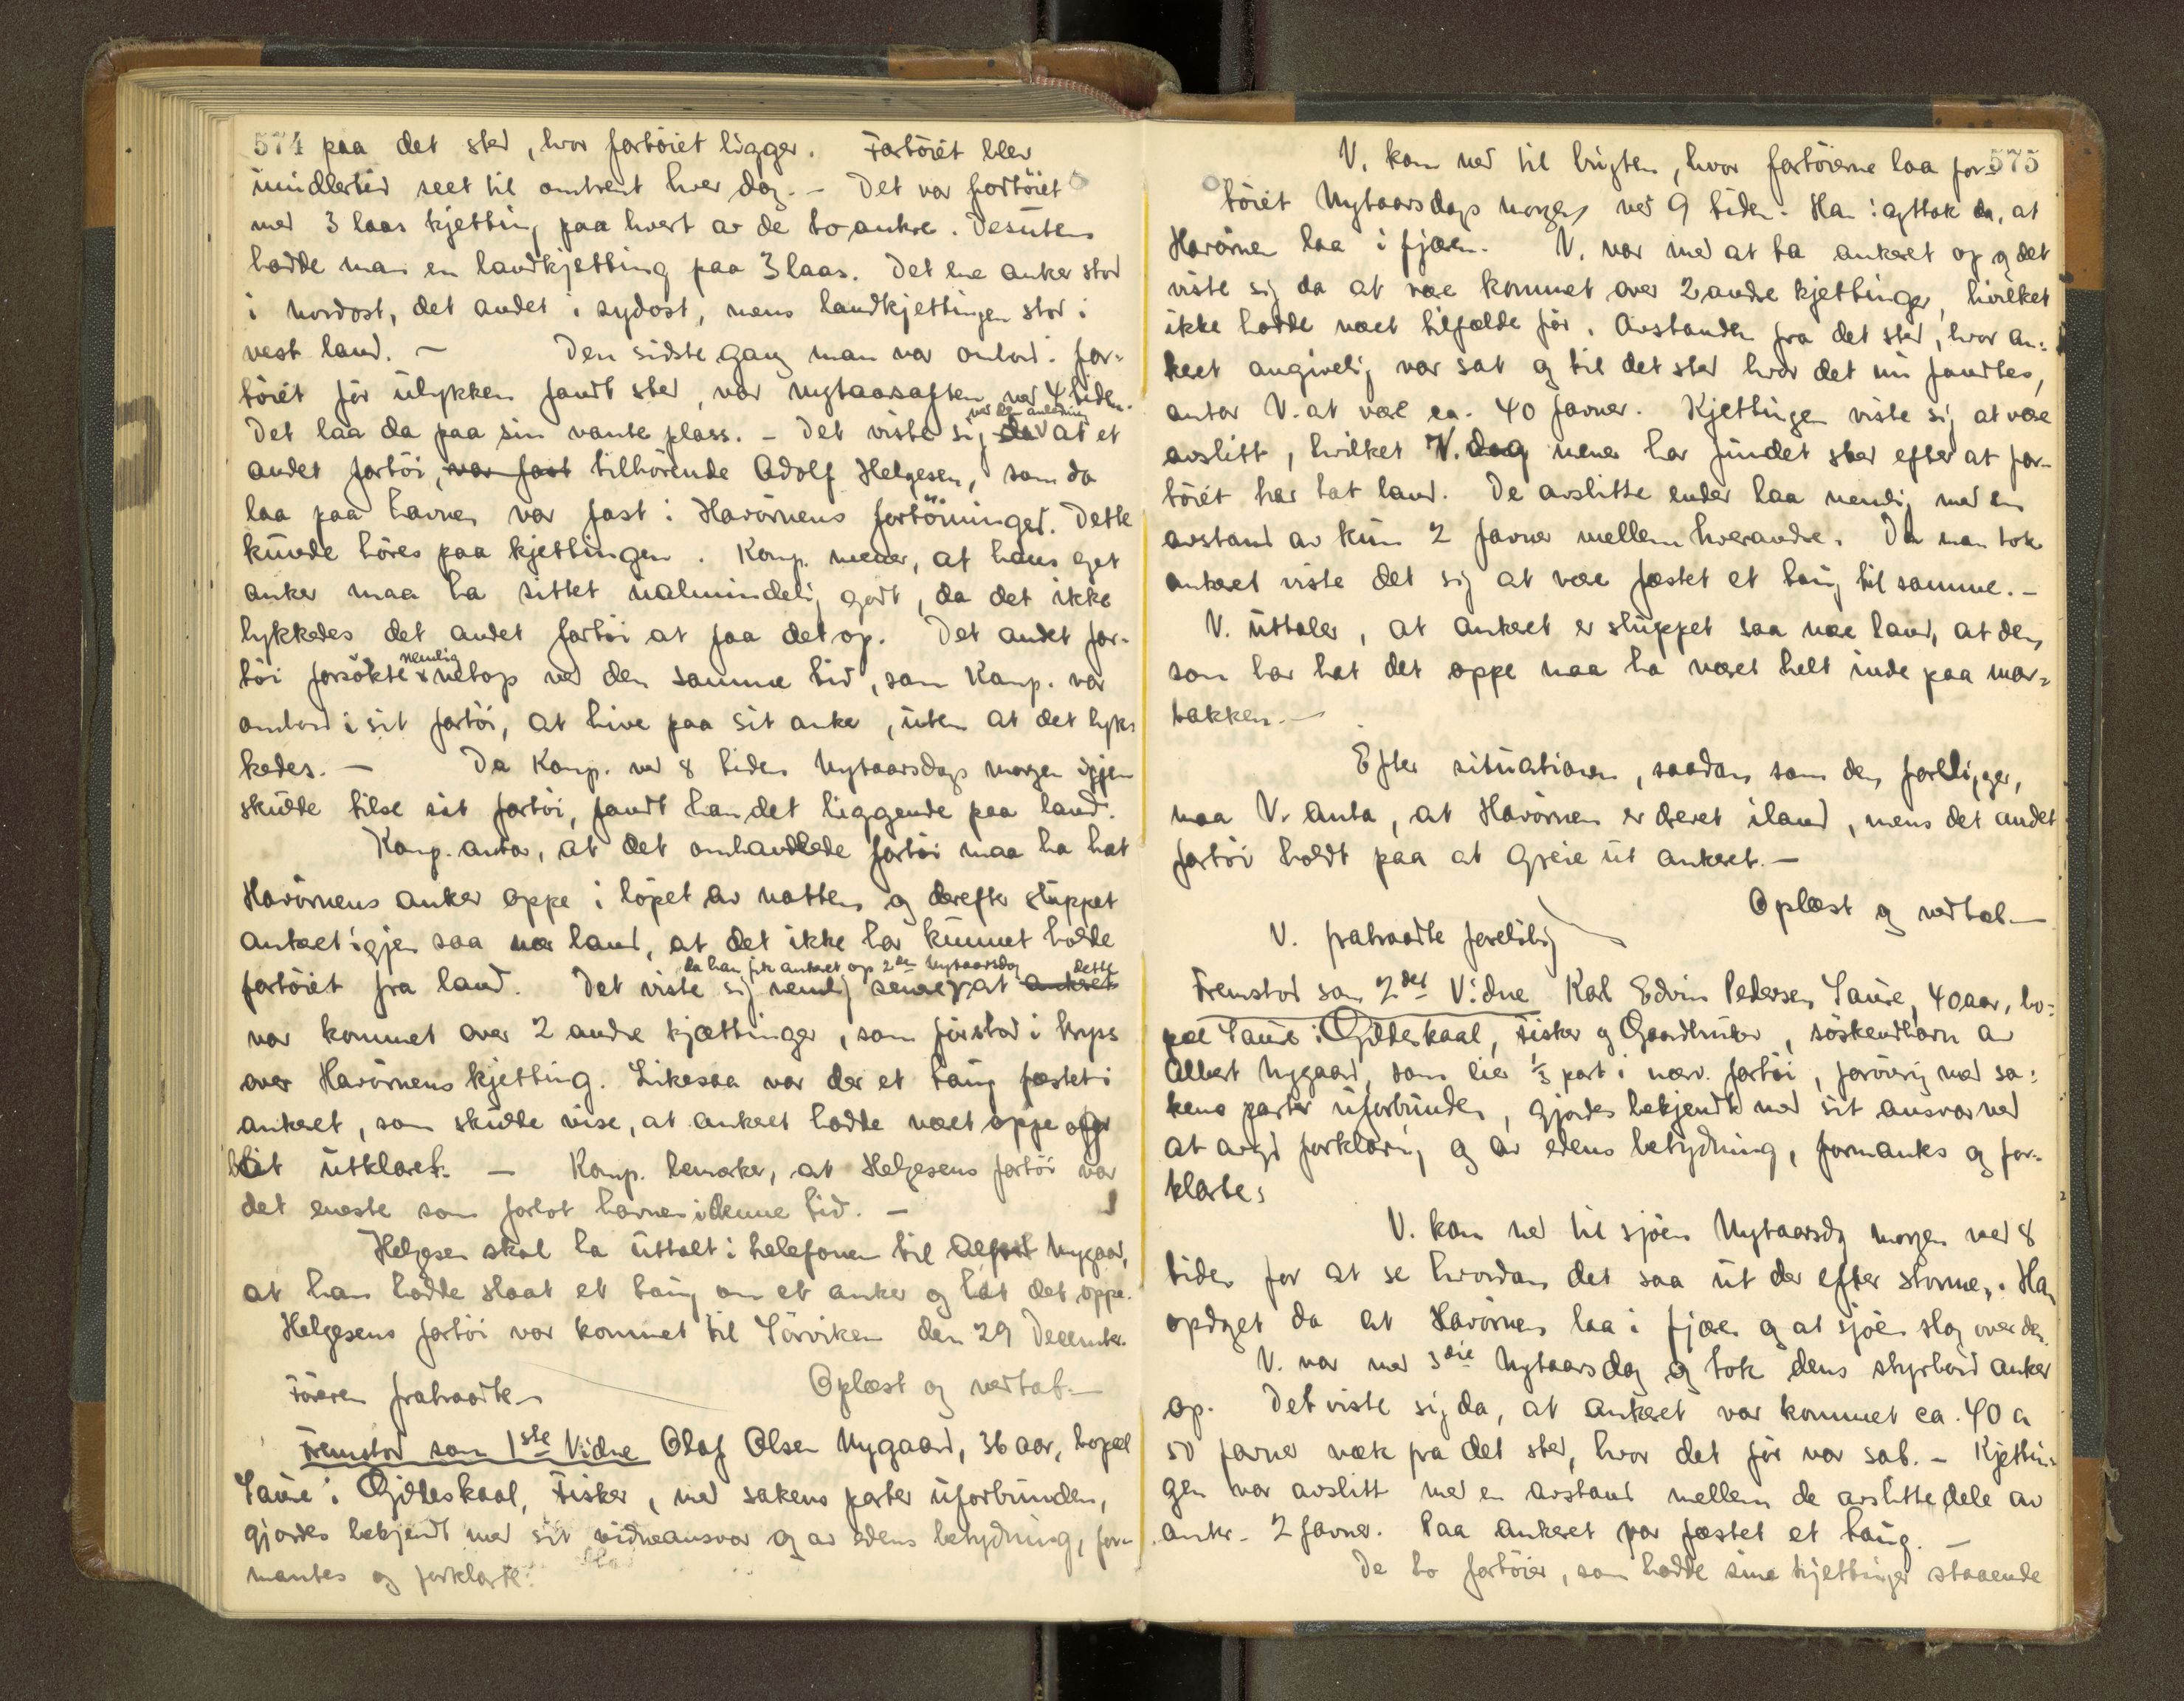 574 paa det sted, hvor fartöiet ligger. Fartöiet blev
imidlertid seet til omtrent hver dag. - Det var fortöiet
med 3 laas kjetting paa hvert av de to ankre. Desuten
hadde man en landkjetting paa 3 laas. Det ene anker stod
i nordost, det andet i sydost, mens landkjettingen stod i
vest land. - Den sidste gang man var ombord i far-
töiet för ulykken fandt sted, var nytaarsaften ved 4 tiden.
Det laa da paa sin vante plass. - Det viste sig da ved den anledning at et
andet fartöi, var fast tilhörende Adolf Helgesen, som da
laa paa havnen var fast i Havörnens fortöininger. Dette
kunde höres paa kjettingen. Komp. mener, at hans eget
anker maa ha sittet ualmindelig godt, da det ikke
lykkedes det andet fartöi at faa det op. Det andet far-
töi forsökte nemlig netop ved den samme tid, som Komp. var
ombord i sit fartöi, at hive paa sit anker, uten at det lyk-
kedes. - Da Komp. ved 8 tiden Nytaarsdags morgen igjen
skulde tilse sit fartöi, fandt han det liggende paa land.
Komp. antar, at det omhandlede fartöi maa ha hat
Havörnens anker oppe i löpet av natten og derefter sluppet
ankeret igjen saa nær land, at det ikke har kunnet holde
fartöiet fra land. Det viste sig nemlig senere da han fik ankeret op 2den Nytaarsdag at ankeret dette
var kommet over 2 andre kjættinger, som för stod i kryps
over Havörnens kjetting. Likesaa var der et taug fæstet i
ankeret, som skulde vise, at ankeret hadde været oppe og
blit utklaret. - Komp. bemerker, at Helgesens fartöi var
det eneste som forlot havnen i denne tid. -
Helgesen skal ha uttalt i telefonen til Alfred Nygaard,
at han hadde slaat et taug om et anker og hat det oppe.
Helgesens fartöi var kommet til Sörviken den 29 December.
Oplæst og vedtat. -
Föreren fratraadte.
Fremstod som 1ste Vidne Olaf Olsen Nygaard, 36 aar, bopæl
Saura i Gildeskaal, Fisker, med sakens parter uforbunden,
gjordes bekjendt med sit vidneansvar og av edens betydning, for-
mantes og forklarte:
V. kom ned til bugten, hvor fartöierne laa for- 575
töiet Nytaarsdags morgen ved 9 tiden. Han iagttok da, at
Havörnen laa i fjæren. V. var med at ta ankeret op og det
viste sig da at være kommet over 2 andre kjettinger, hvilket
ikke hadde været tilfælde för. Avstanden fra det sted, hvor an-
keret angivelig var sat og til det sted hvor det nu fandtes,
antar V. at være ca. 40 favner. Kjettingen viste sig at være
avslitt, hvilket V. dog mener har fundet sted efter at far-
töiet har tat land. De avslitte ender laa nemlig med en
avstand av kun 2 favner mellem hverandre. Da man tok
ankeret viste det sig at være fæstet et taug til samme. -
V. uttaler, at ankeret er sluppet saa nær land, at den,
som har hat det oppe maa ha været helt inde paa mar-
bakken. -
Efter situationen, saadan som den foreligger,
maa V. anta, at Havörnen er drevet iland, mens det andet
fartöi holdt paa at greie ut ankeret. -
Oplæst og vedtat -
V. fratraadte foreløbig
Fremstod som 2det Vidne Karl Edvin Pedersen Saura, 40 aar, bo-
pæl Saura i Gildeskaal, Fisker og Gaardbruker, söskendbarn av
Albert Nygaard, som eier 1/3 part i nærv. fartöi, forövrig med sa-
kens parter uforbunden, gjordes bekjendt med sit ansvar ved
at avgi forklaring og av edens betydning, formantes og for-
klarte:
V. kom ned til sjöen Nytaarsdag morgen ved 8
tiden for at se hvordan det saa ut der efter stormen. Han
opdaget da at Havörnen laa i fjæren og at sjöen slog over den.
V. var med 3die Nytaarsdag og tok dens styrbord anker
op. Det viste sig da, at ankeret var kommet ca. 40 a
50 favner væk fra det sted, hvor det för var sat. - Kjettin-
gen var avslitt med en avstand mellem de avslitte dele av
ankr. 2 favner. Paa ankeret var fæstet et taug. -
De to fartöier, som hadde sine kjettinger staaende